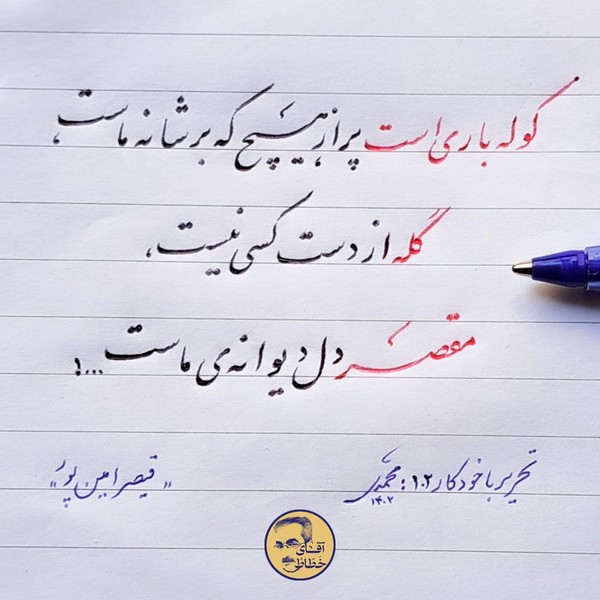 کوله باری است پر از هیچ که بر شانه ماست،
گله از دست کسی نیست،
مقصّر دل دیوانه‌ی ماست...!
تحریر با خودکار ۱.۲ : محمدی
۱۴۰۲
"قیصر امین پور"
آقای
خطاط